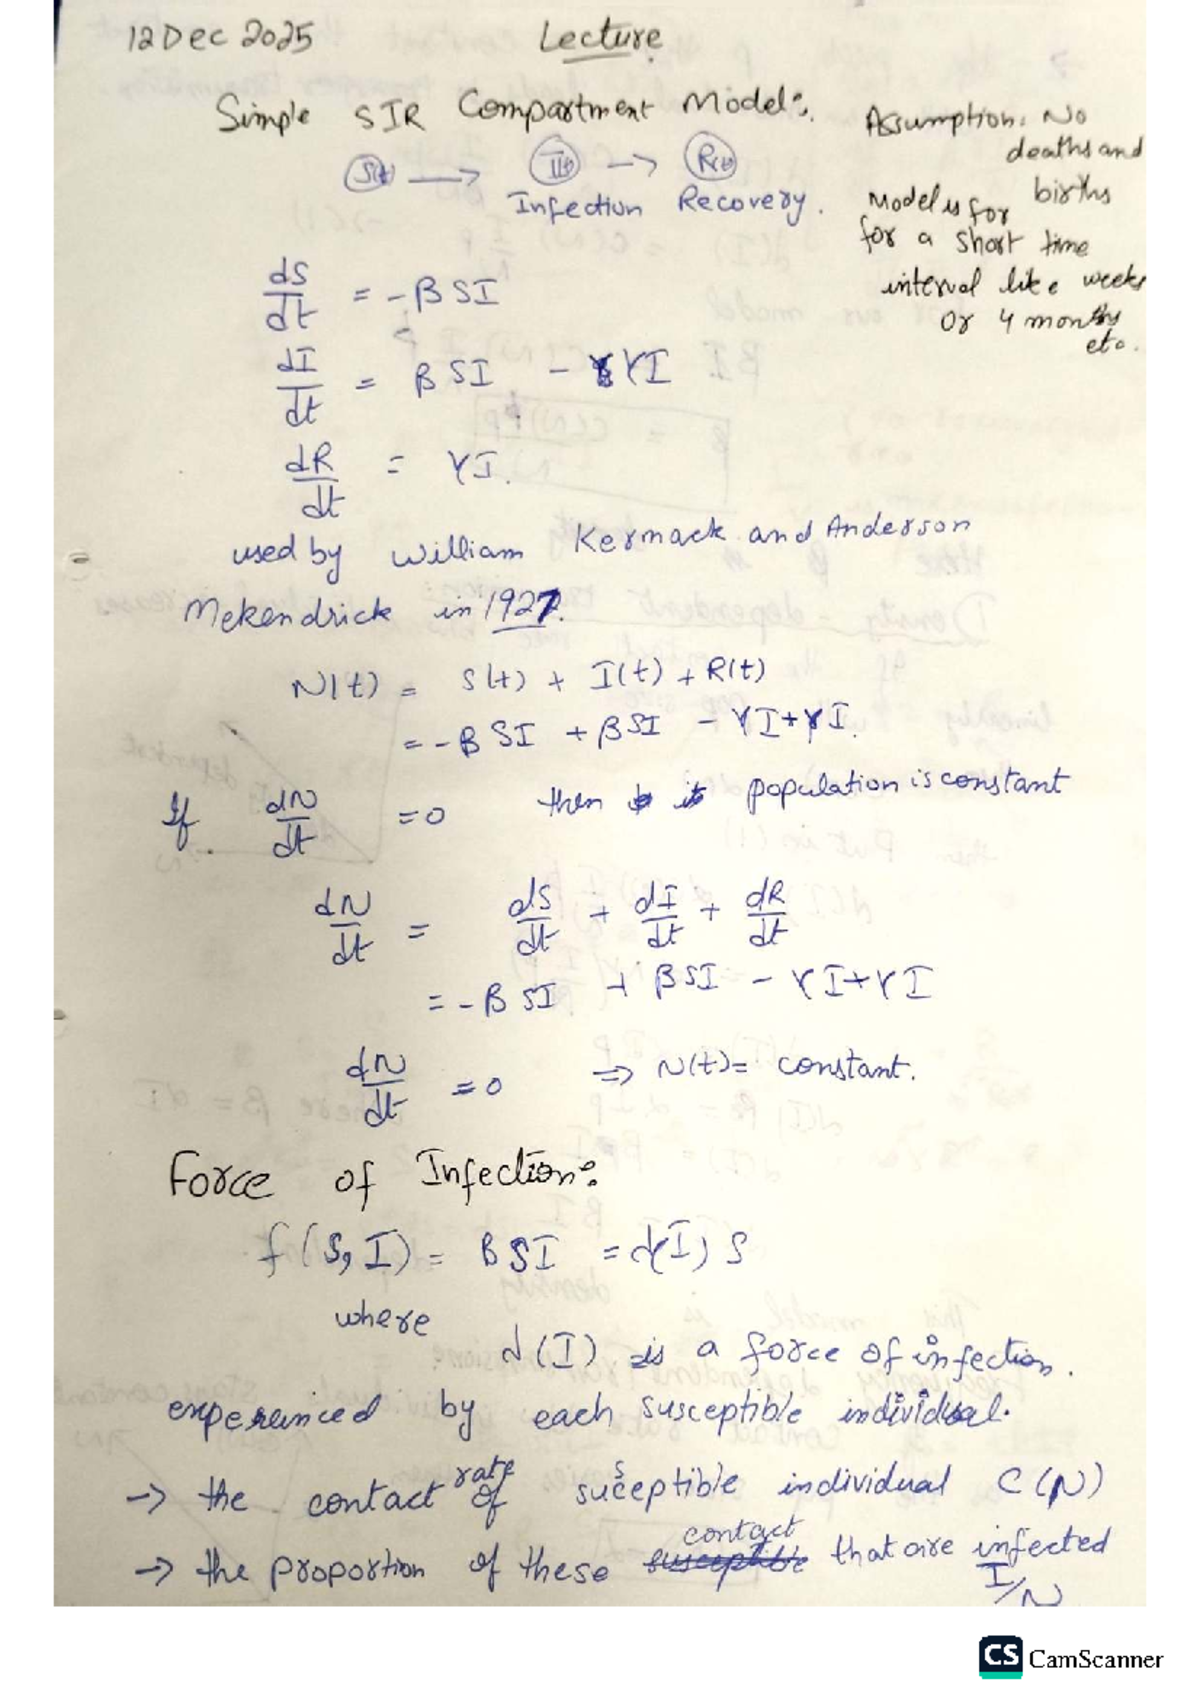 12 Dec 2025 Lecture
Simple SIR Compartment Model:.
Assumption: No
deaths and
births
Model is for
for a short time
interval like weeks
or 4 months
etc.
S(t) → I(t) → R(t)
Infection Recovery.
dS/dt = -β SI
dI/dt = β SI - γI
dR/dt = γI.
used by William Kermack and Anderson
Mekendrick in 1927.
N(t) = S(t) + I(t) + R(t)
= -β SI + β SI - γI + γI.
If dN/dt = 0 then population is constant
dN/dt = dS/dt + dI/dt + dR/dt
= -β SI + β SI - γI + γI
dN/dt = 0 ⇒ N(t) = constant.
Force of Infection:
f(S, I) = β SI = λ(I) S
where
λ(I) is a force of infection.
experienced by each susceptible individual.
→ the contact rate of susceptible individual C(N)
→ the proportion of these contact that are infected
I/N
CS CamScanner